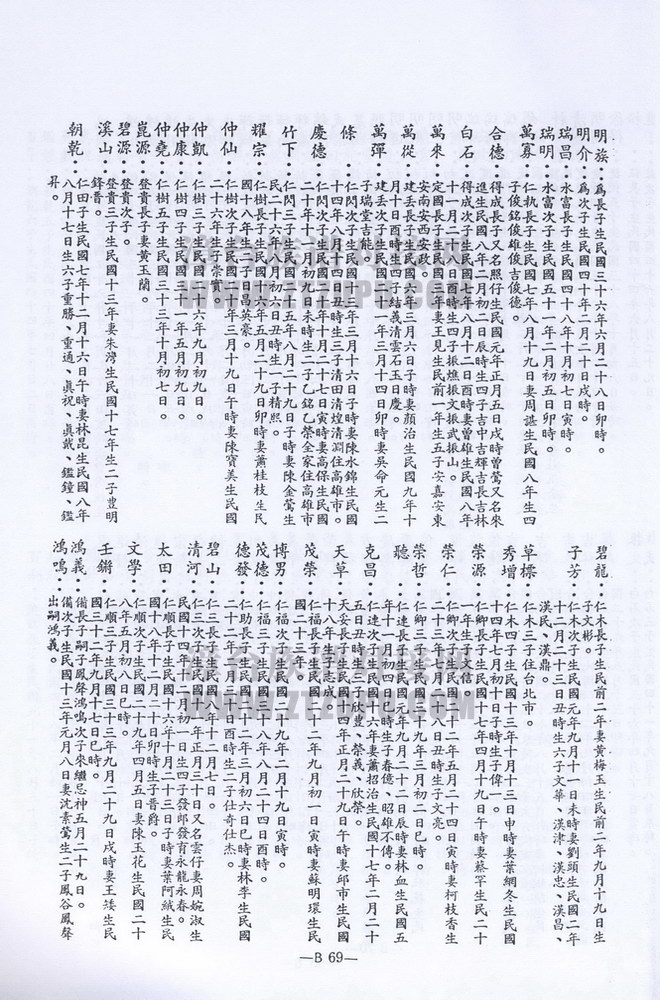 明族：為長子生民國三十六年六月二十八日卯時。
明介：為次子生民國四十年二月二十日戌時。
瑞昌：水富長子生民國四十八年十月初七日寅時。
瑞明：水富次子生民國五十一年二月初五日卯時。
萬寡：仁執長子生民國七年八月十九日妻周諶生民國八年生四
子俊銘俊雄俊吉俊德。
合德：得成長子又名照仔生民國元年正月五日戌時曾鶯又名來
進生民國八年二月初二日辰時生四子吉中吉輝吉長吉林
白石：得成次子生民國七年八月十二日酉時妻曾雄生民國八年
十一月二十二日酉時生四子振燋振文振武振山。
萬來：定國長子生民國年妻王見生民前一年生五子安嘉安東
安南安西安政。
萬從：建丟長子生民國六年三月六日子時妻顏治生民國九年十
月十日酉時生四子結義清雲石玉日慶。
萬彈：建丟次子生民國十一年三月十四日卯時妻吳命元生二
子瑞堂吉能。
條：仁閃次子生民國年三月十六日子時妻陳水錦生民國
十四年八月十四日丑時生三子清田清煌清潤住高雄市。
慶德：仁閃次子生民國年十月二十七日寅時妻高保生民國
二十年十二月初三日未時生二子乙銘乙榮全家住高雄市
竹下：仁閃三子生民國十五年八月二十九日子時妻陳金鶯生
民二十六年月初六日丑時生一子精熙。
耀宗：仁樹長子生民國十六年五月二十九日卯時妻蕭桂枝生民
國十八年生三子日昌英豪。
仲仙：仁樹次子生民國二十年三月十九日午時妻陳寶美生民國
二十六年生子崇寶。
仲凱：仁樹三子生民國二十六年九月初九日。
仲康：仁樹四子生民國三十一年五月初九日。
仲堯：仁樹五子生民國三十三年十月初七日。
崑源：登貴長子妻黃玉蘭。
碧源：登貴次子。
溪山：登貴三子生民國十三年妻朱灣生民國十七年生二子豊明
鋒晋。
朝乾：仁田子生民國七年十二月十六日午時妻林昆生民國八年
八月十七日生六子重勝、重通、眞祝、眞戴、鑑鐘、鑑
昇。
碧龍：仁木長子生民前二年妻黃梅玉生民前二年九月十九日生
子文彬。
子芳：仁木次子生民國元年九月十一日未時妻劉頭生民國二年
十二月二十三日丑時生六子文華、漢津、漢忠、漢昌、
漢民、漢鼎。
草標：仁木三子住台北市。
秀增：仁木四子生民國十三年十月十三日申時妻葉網冬生民國
十四年七月初十日子時生子偉一。
榮源：仁卿長子生民國十七年四月十九日午時妻蔡罕生民二十
一年生子文信。
榮仁：仁卿次子生民國二十年五月二十四日寅時妻柯枝香生
二十三年月八日丑時生子文亮。
榮哲：仁卿三子生民國二十九年三月初二日巳時。
聽：仁連長子生民國元年九月二十二日辰時妻林血生民國五
年十一月初四日時生子春億、昭雄不傳。
克昌：仁連次子生民國六年妻蕭招治生民國十七年二月二十
五日丑時生三子欣豊、榮義、欣榮。
天草：天妥長子生民國四年正月二十九日午時妻邱市生民國
十八年生子志成。
茂榮：仁福長子生民國二十二年九月初一日寅時妻蘇明環生民
國二十三年。
博男：仁福次子生民國二十九年二月十九日寅時。
茂德：仁福三子生民國三十八年八月二十四日酉時。
德發：仁助長子生民國二十二年三月初六日巳時妻林李生民國
二十二年月三日酉時生二子仕奇仕杰。
碧山：仁三長子生民國一年十二月七日。
清河：仁三次子生民國一年正月三十日又名雲仔妻周婉淑生
民國十四年月初一日生四子發郎發育永龍永春。
太田：仁順長子生民國十六年十月二十三日子時妻葉阿絨生民
國十八年十二月二十日卯時生子晋爵。
文學：仁順次子生民國二十九年四月五日妻陳玉花生民國二十
八年五月初八日巳時。
壬鏘：仁順三子生民國三十三年九月二十九日戌時妻王矮生民
國三十二年九月十七日巳時。
鴻義：備長子嗣子鳳聲鴻鳴次子來繼忌神五月二十九日。
鴻鳴：備次子生民國十三年元月八日妻沈素鶯生二子鳳谷鳳聲
出嗣鴻義。
—B 69—